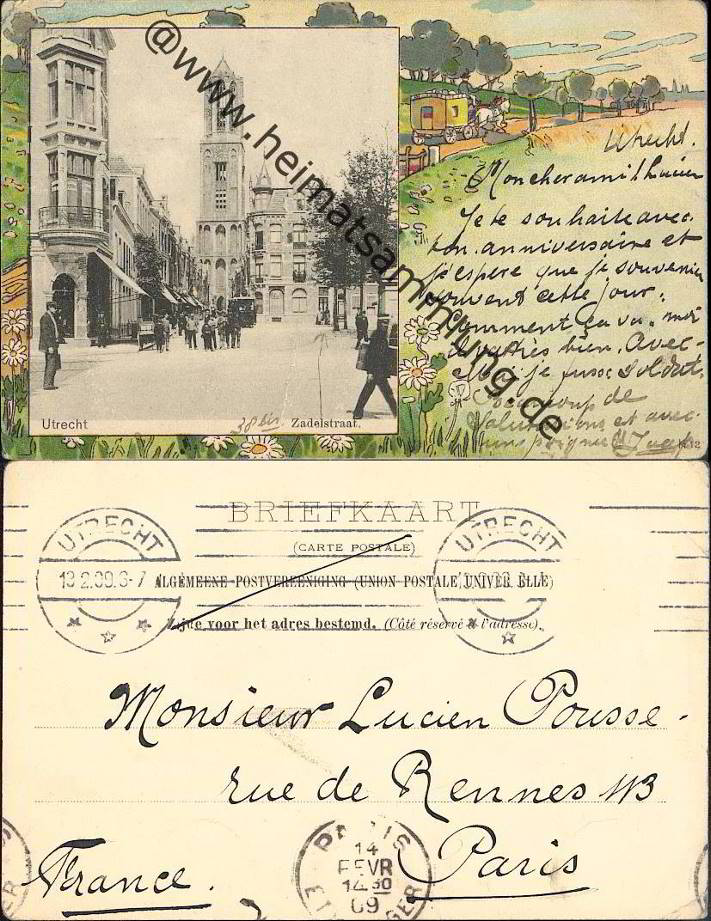 @www.heimatsammlung.de
Utrecht.
Mon cher ami Lucien
Je te souhaite avec
ton anniversaire et
j'espere que je souvenir
souvent cette jour.
Comment ça va. moi
très bien. Avec
je fusse soldat.
Beaucoup de
salutations et avec
Utrecht
38 bis
Zadelstraat.
BRIEFKAART
(CARTE POSTALE)
ALGEMEENE POSTVEREENIGING (UNION POSTALE UNIVERSELLE)
Zijde voor het adres bestemd. (Côté réservé à l'adresse).
UTRECHT
13.2.09.6-7
UTRECHT
Monsieur Lucien Pousse-
rue de Rennes 113
Paris
France.
PARIS
14
FEVR
14 30
09
ETRANGER